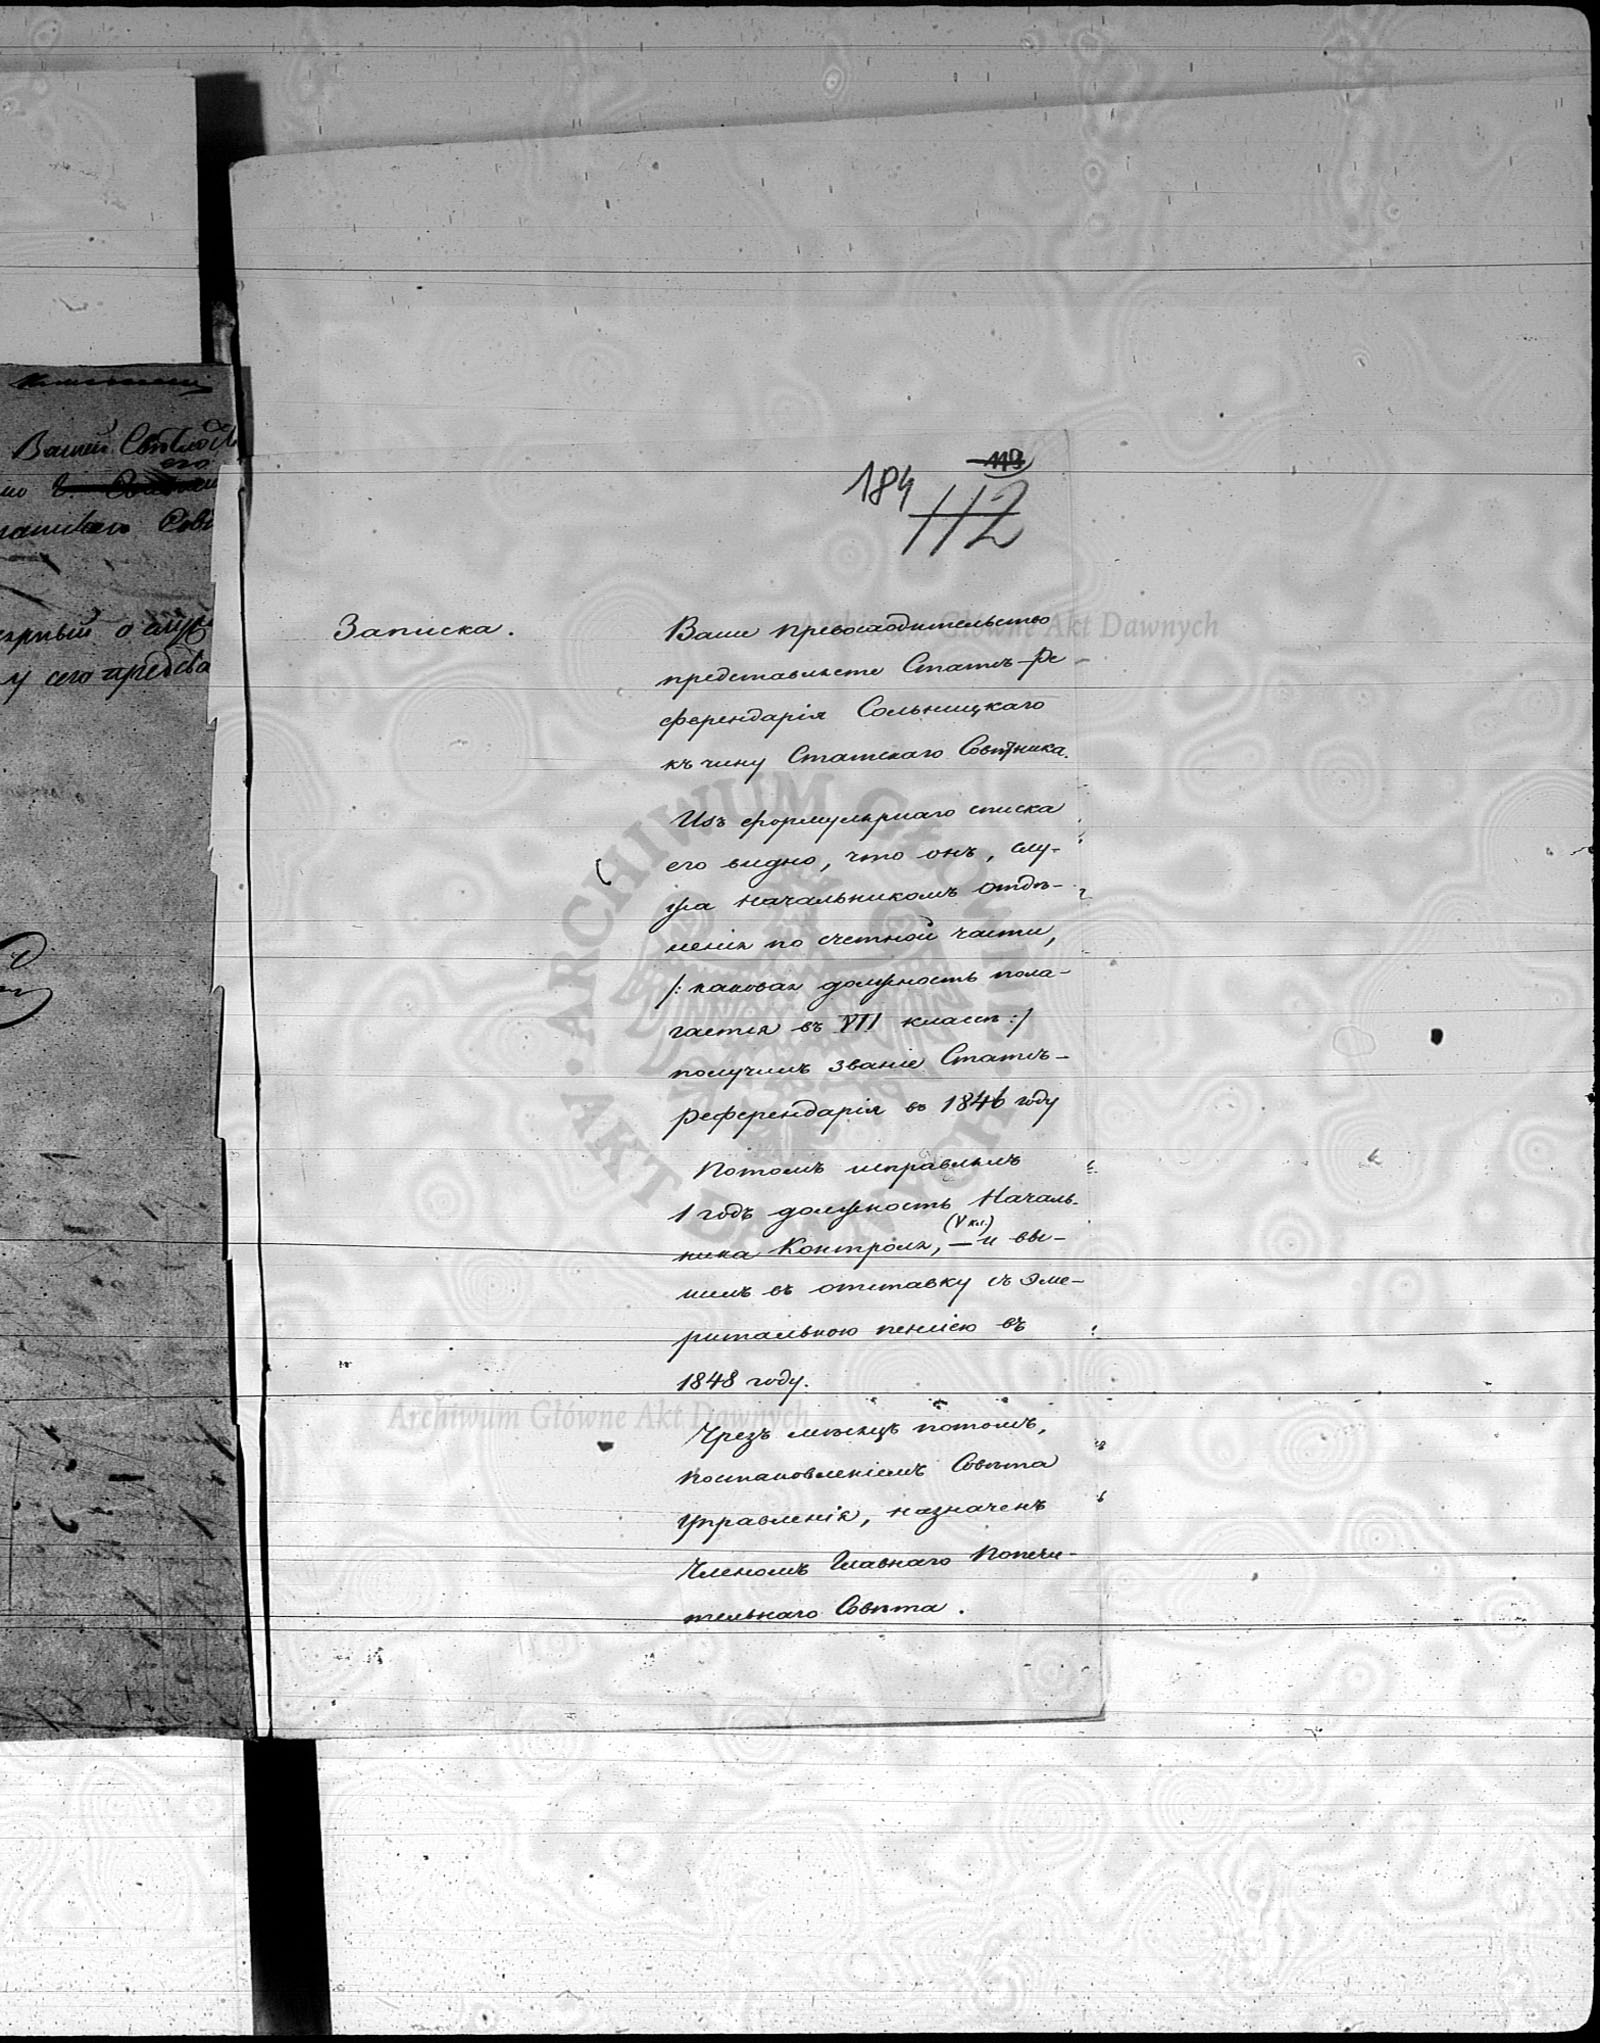 119
184
112
Записка.
Ваше Превосходительство
представляете Статсъ-Ре
ферендарія Сольницкаго
къ чину Статскаго Совѣтника.
Изъ формулярнаго списка
его видно, что онъ, слу-
жа Начальникомъ Отдѣ-
ленія по счетной части,
/: каковая должность пола-
гается въ VII классѣ :/
получилъ званіе Статсъ-
Референдарія въ 1846 году
Потомъ исправлялъ
1 годъ должность Началь-
(V кл.)
ника Контроля, — и вы-
шелъ въ отставку съ Эме-
ритальною пенсіею въ
1848 году.
Чрезъ мѣсяцъ потомъ,
Постановленіемъ Совѣта
Управленія, назначенъ
Членомъ Главнаго Попечи-
тельнаго Совѣта.
Вашей
у сего предста
Archiwum Główne Akt Dawnych
ARCHIWUM GŁÓWNE
AKT DAWNYCH
Archiwum Główne Akt Dawnych